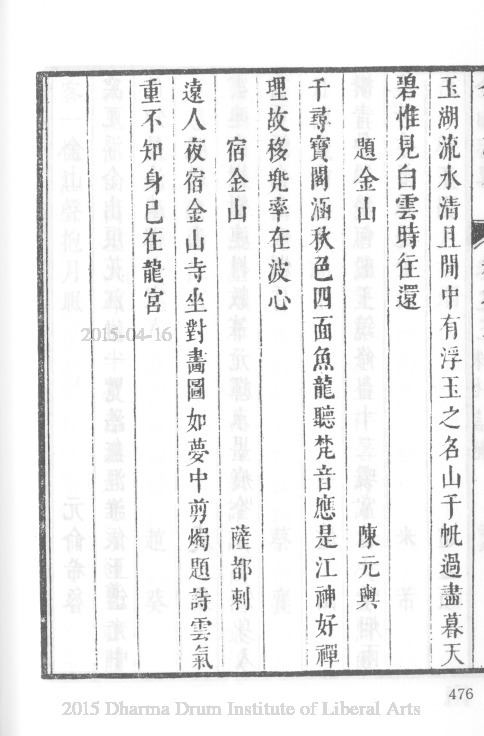 玉湖流水清且閒中有浮玉之名山千帆過盡暮天
碧惟見白雲時往還
題金山 陳元輿
千尋寶閣涵秋色四面魚龍聽梵音應是江神好禪
理故移兠率在波心
宿金山 薩都剌
遠人夜宿金山寺坐對畵圖如夢中剪燭題詩雲氣
重不知身已在龍宮
2015-04-16
476
2015 Dharma Drum Institute of Liberal Arts